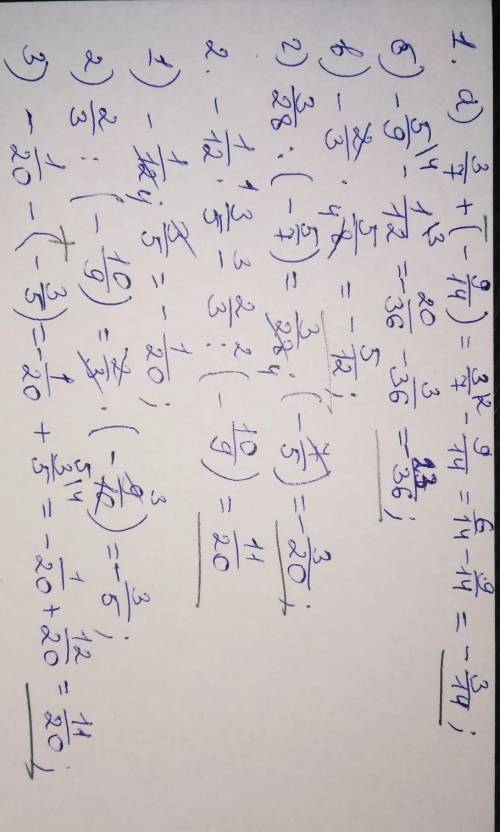 1. а) 3/7 + (- 9/14) = 3/7\2 - 9/14 = 6/14 - 9/14 = - 3/14;
б) - 5/9\4 - 1/12\3 = - 20/36 - 3/36 = - 23/36;
в) - 2/3 · 5/8 = - 5/12;
г) 3/28 : (- 5/7) = 3/28 · (- 7/5) = - 3/20;
2. - 1/12 · 3/5 - 2/3 : (- 10/9) = 11/20
1) - 1/12 · 3/5 = - 1/20;
2) 2/3 : (- 10/9) = 2/3 · (- 9/10) = - 3/5;
3) - 1/20 - (- 3/5) = - 1/20 + 3/5\4 = - 1/20 + 12/20 = 11/20;